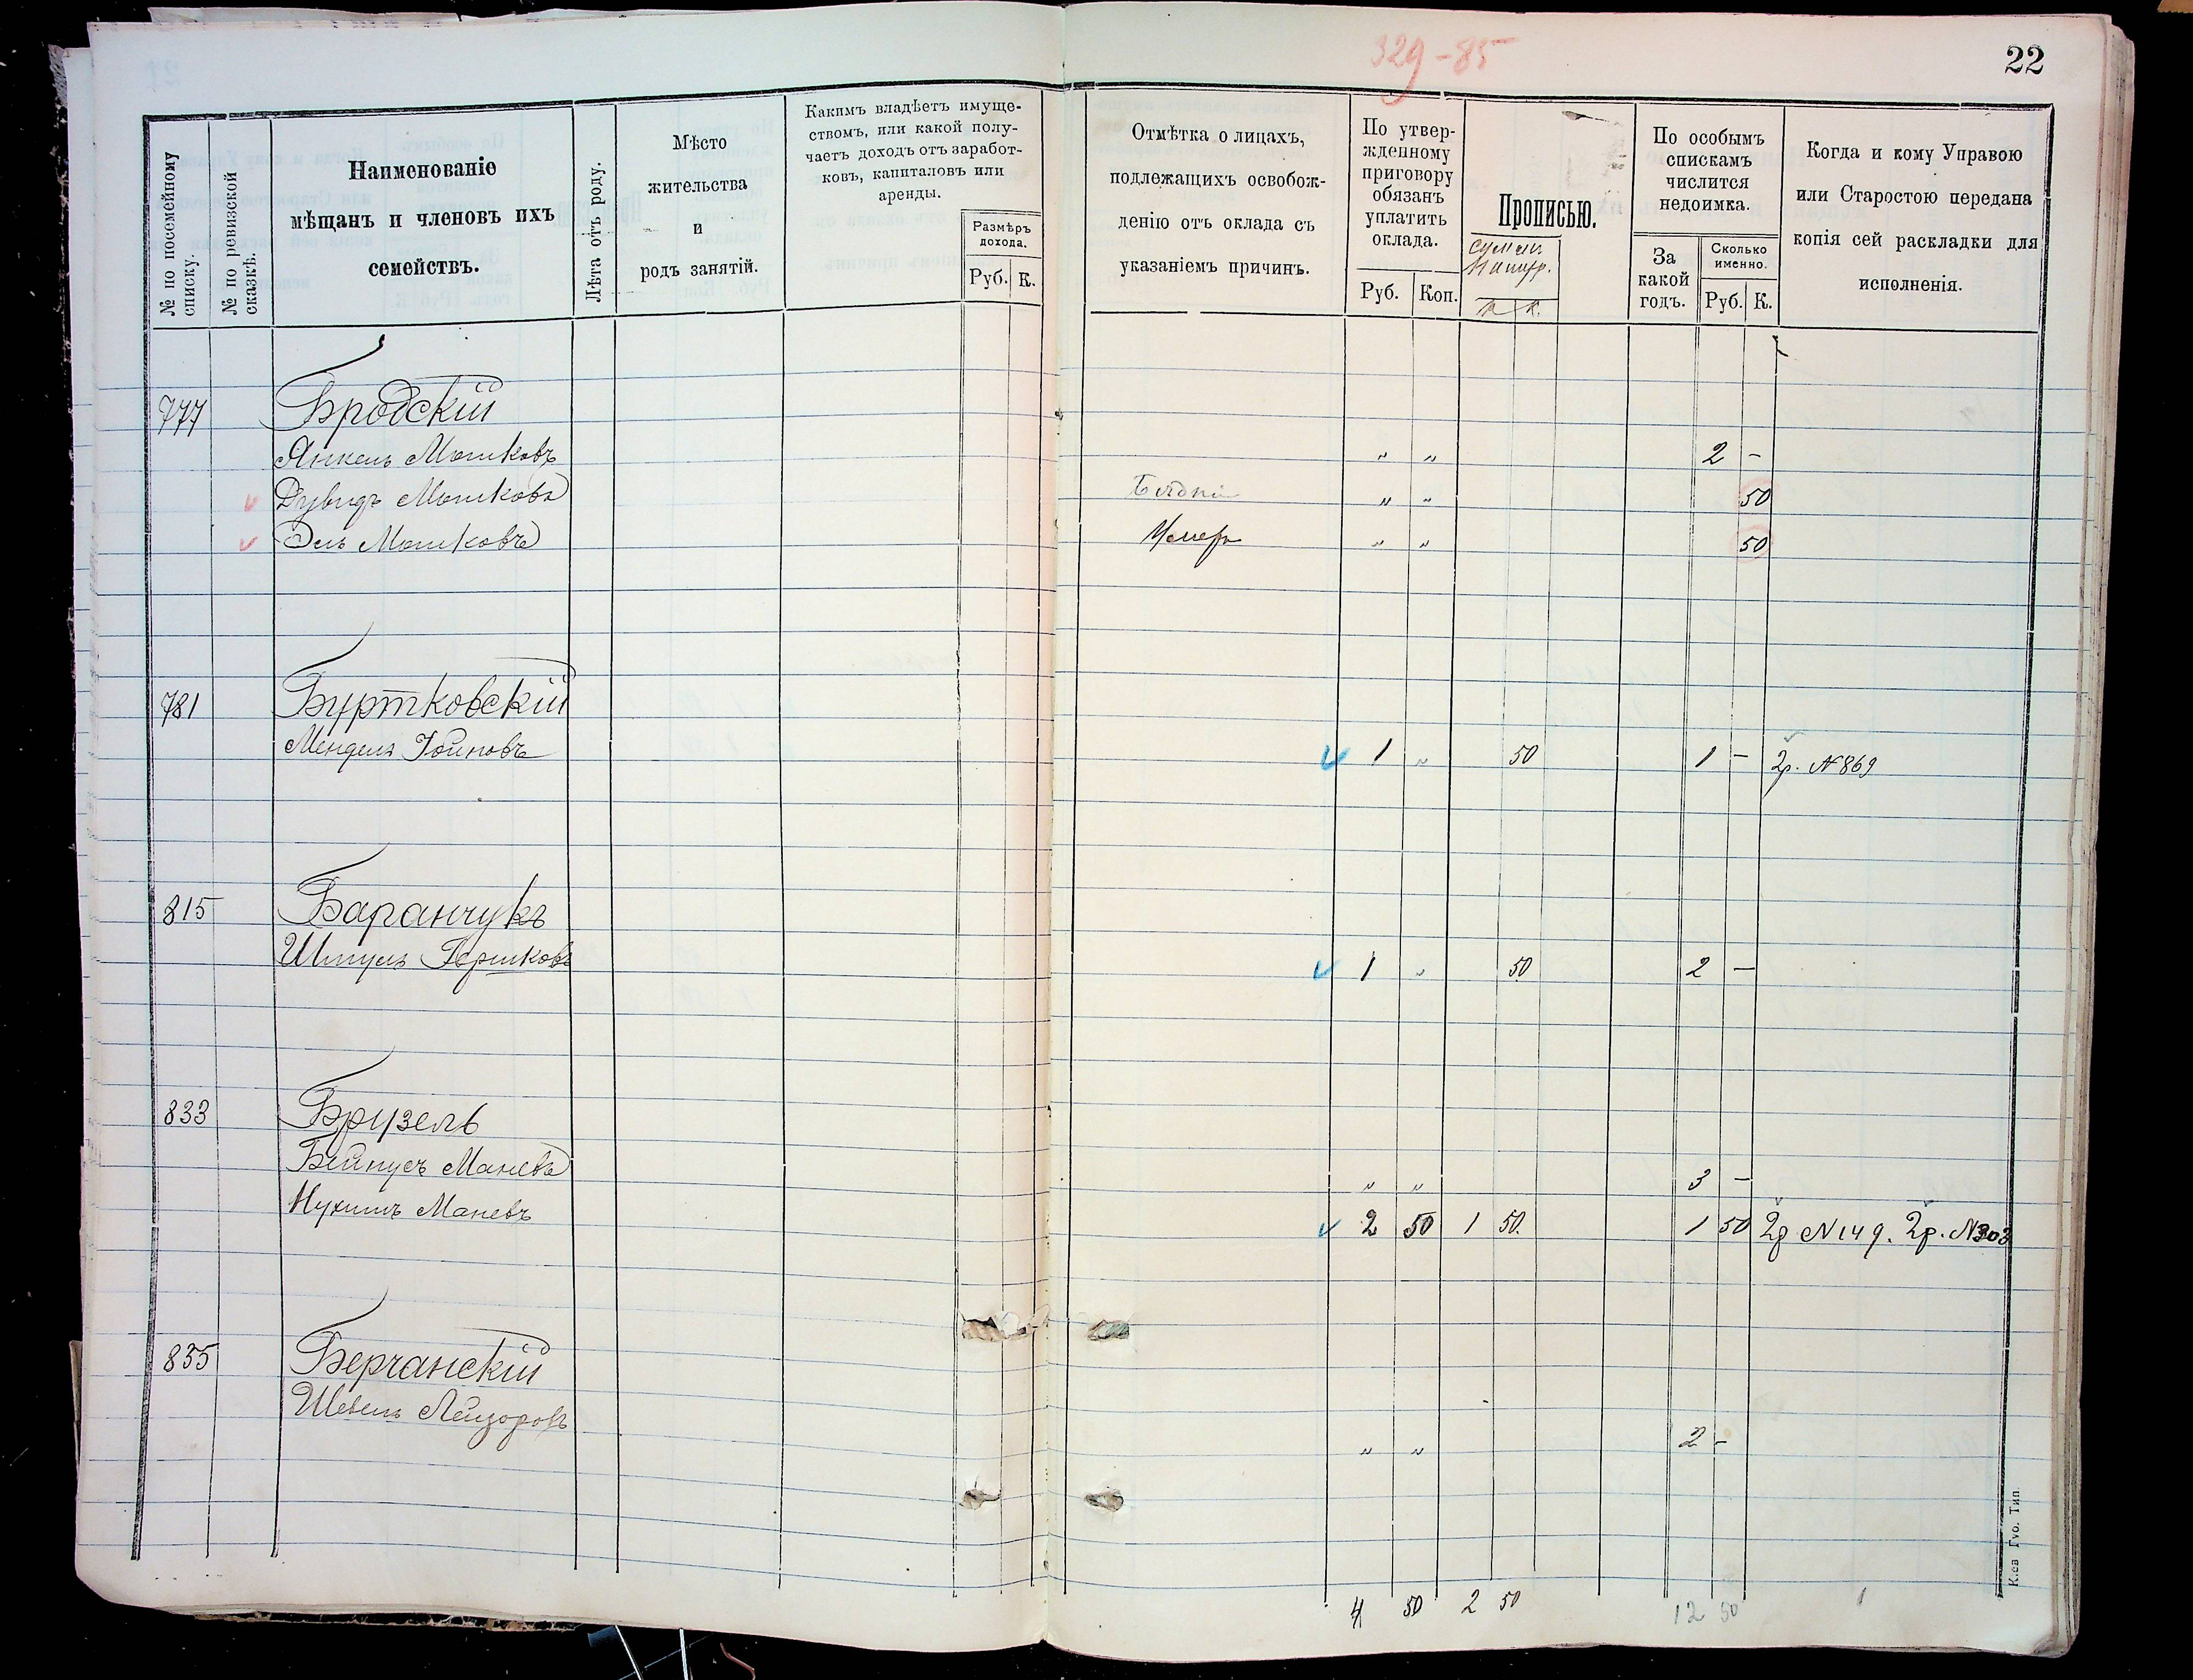 329-85
22
№ по посемейному списку.
№ по ревизской сказкѣ.
Наименованіе
мѣщанъ и членовъ ихъ
семействъ.
Лѣта отъ роду.
Мѣсто
жительства
и
родъ занятій.
Какимъ владѣетъ имуще-
ствомъ, или какой полу-
чаетъ доходъ отъ заработ-
ковъ, капиталовъ или
аренды.
Размѣръ
дохода.
Руб. К.
Отмѣтка о лицахъ,
подлежащихъ освобож-
денію отъ оклада съ
указаніемъ причинъ.
По утвер-
жденному
приговору
обязанъ
уплатить
оклада.
Руб. Коп.
Прописью.
Р. К.
По особымъ
спискамъ
числится
недоимка.
За
какой
годъ.
Сколько
именно.
Руб. К.
Когда и кому Управою
или Старостою передана
копія сей раскладки для
исполненія.
777 Бродскій
Янкель Мошковъ " " 2 -
Дувидъ Мошковъ Бѣдный " " 50
Эль Мошковъ Умеръ " " 50
781 Буртковскій
Мендель Іойновъ 1 " 50 1 - 2р. №869
815 Баранчукъ
Шмуль Гершковъ 1 " 50 2 -
833 Брузель
Бейнусъ Маневъ " " 3 -
Нухимъ Маневъ 2 50 1 50. 1 50 2р №149. 2р. №303
835 Берчанскій
Шевель Лейзоровъ " " 2 -
4 50 2 50 12 50 1
Кіев Губ. Тип.